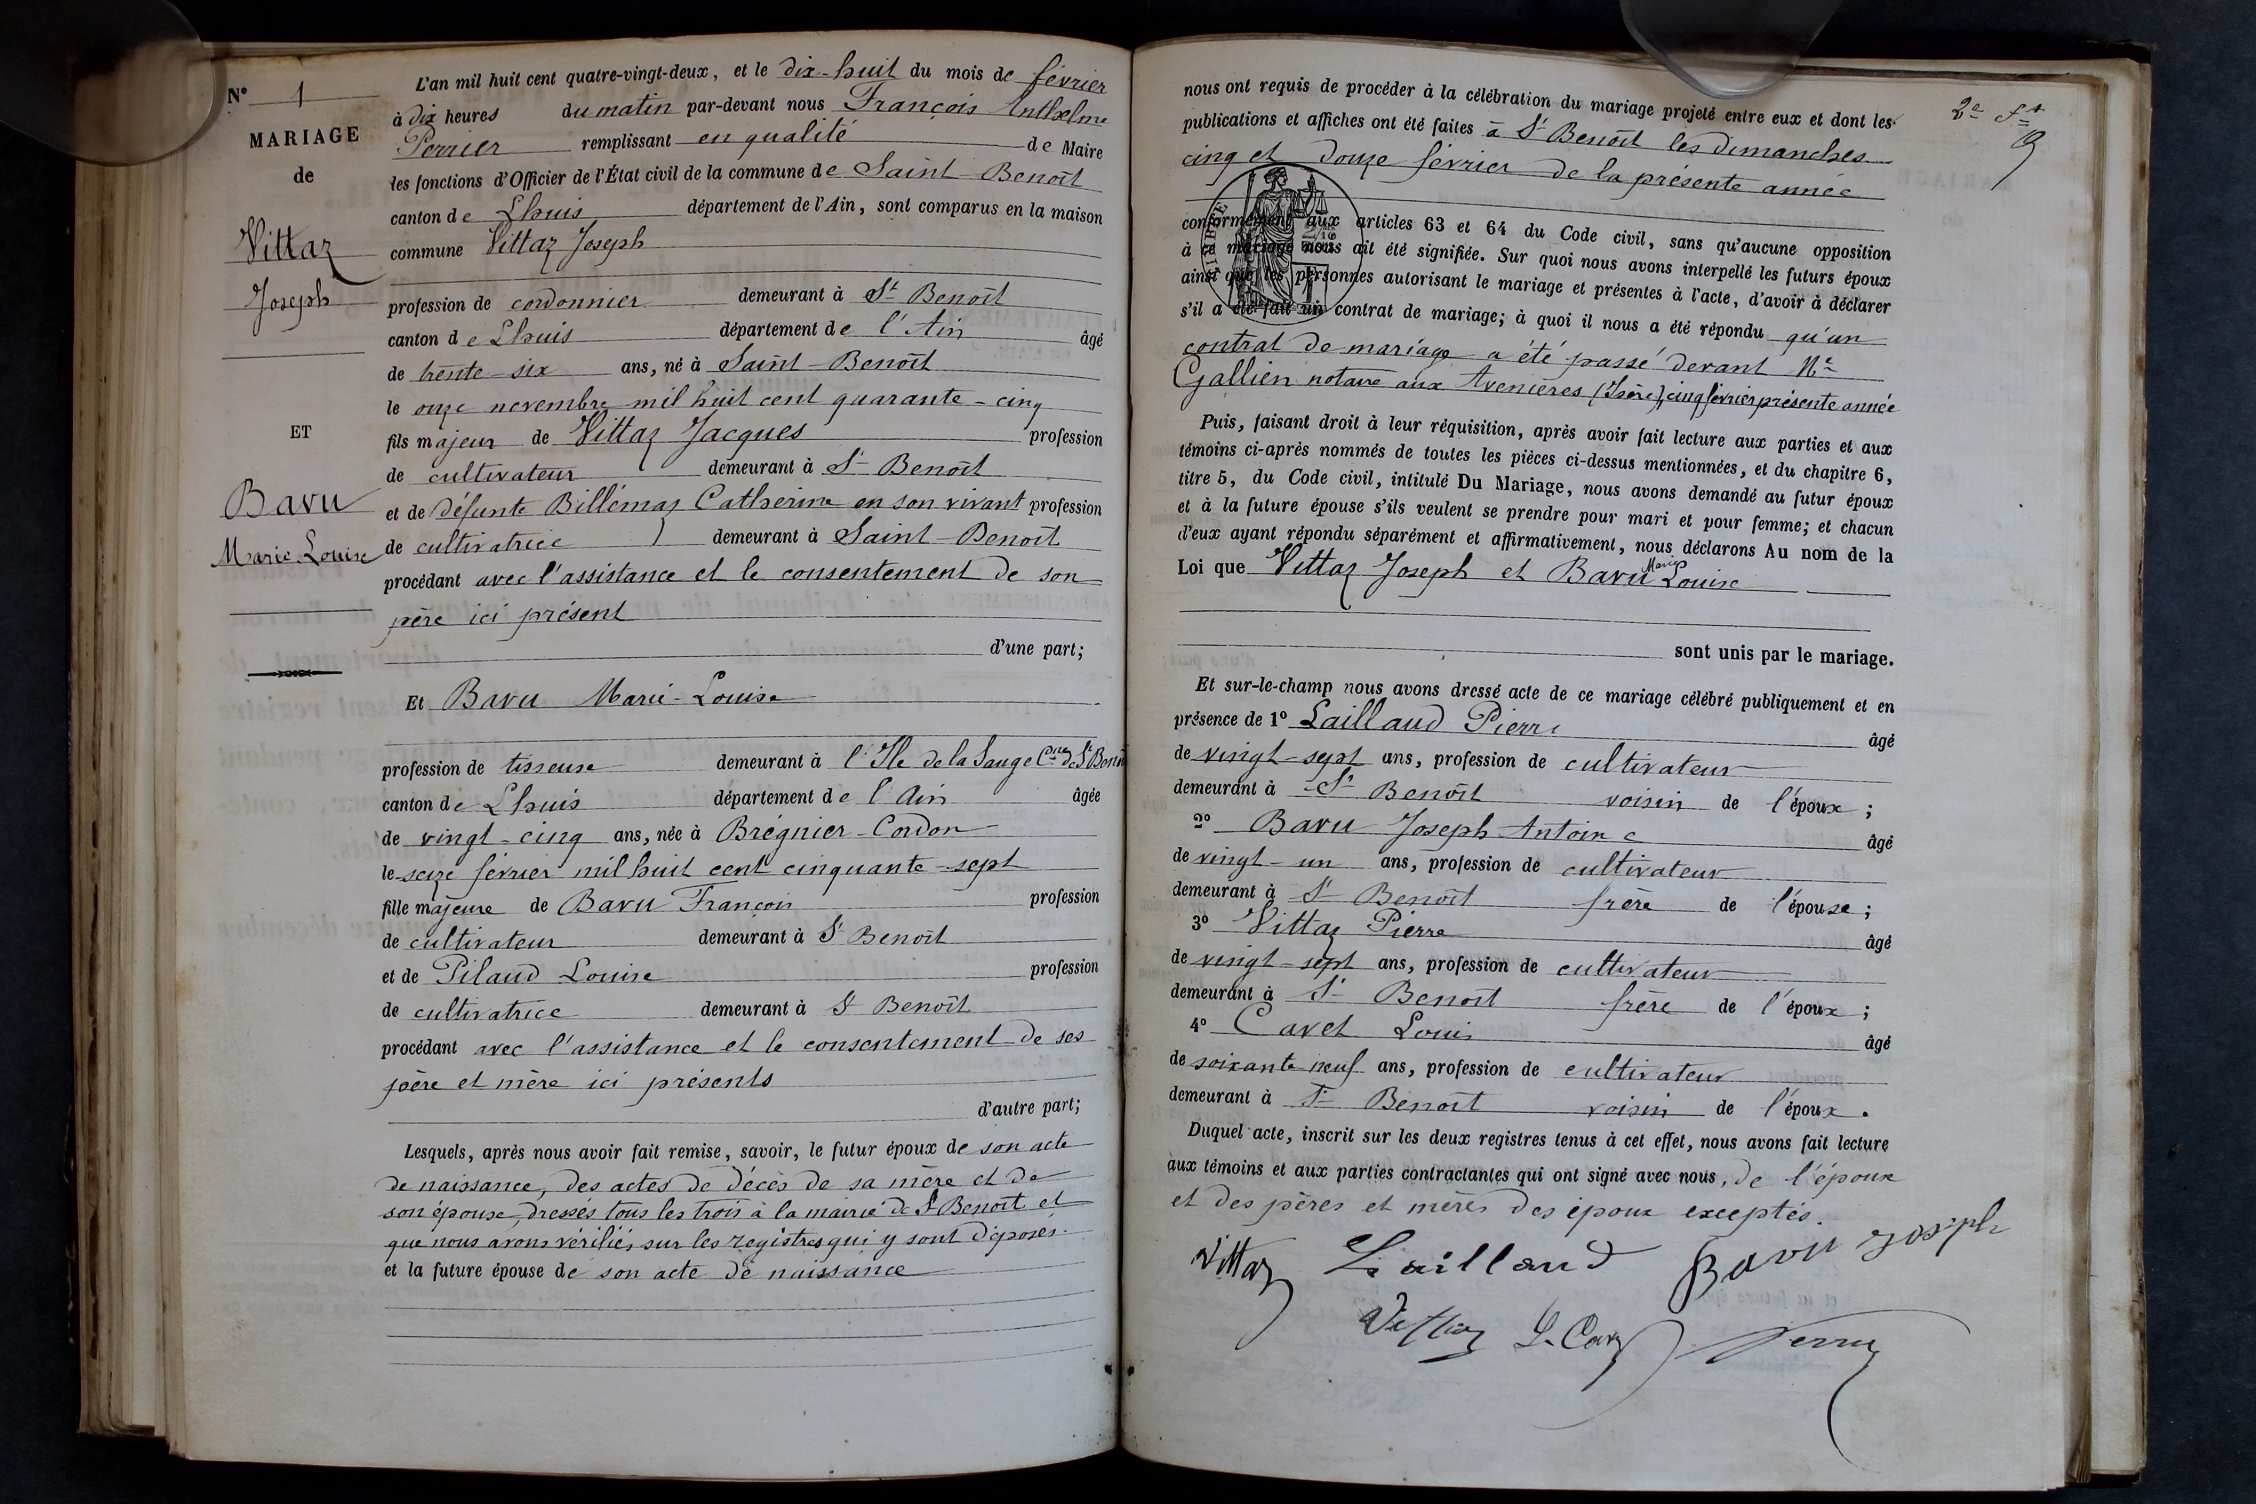 N° 1
MARIAGE
de
Vittaz
Joseph
ET
Bavu
Marie-Louise
L'an mil huit cent quatre-vingt-deux, et le dix-huit du mois de février
à dix heures du matin par-devant nous François Anthelme
Perrier remplissant en qualité de Maire
les fonctions d'Officier de l'État civil de la commune de Saint Benoît
canton de Lhuis département de l'Ain, sont comparus en la maison
commune Vittaz Joseph
profession de cordonnier demeurant à St Benoît
canton de Lhuis département de l'Ain âgé
de trente-six ans, né à Saint-Benoît
le onze novembre mil huit cent quarante-cinq
fils majeur de Vittaz Jacques profession
de cultivateur demeurant à St Benoît
et de défunte Billémaz Catherine en son vivant profession
de cultivatrice demeurant à Saint-Benoît
procédant avec l'assistance et le consentement de son
père ici présent
d'une part;
Et Bavu Marie-Louise
profession de tisseuse demeurant à l'Ile de la Sauge Cne de St Benoît
canton de Lhuis département de l'Ain âgée
de vingt-cinq ans, née à Brégnier-Cordon
le seize février mil huit cent cinquante-sept
fille majeure de Bavu François profession
de cultivateur demeurant à St Benoît
et de Pilaud Louise profession
de cultivatrice demeurant à St Benoît
procédant avec l'assistance et le consentement de ses
père et mère ici présents
d'autre part;
Lesquels, après nous avoir fait remise, savoir, le futur époux de son acte
de naissance, des actes de décès de sa mère et de
son épouse, dressés tous les trois à la mairie de St Benoît et
que nous avons vérifiés sur les registres qui y sont déposés.
et la future épouse de son acte de naissance
2e St
nous ont requis de procéder à la célébration du mariage projeté entre eux et dont les
publications et affiches ont été faites à St Benoît les dimanches
cinq et douze février de la présente année
conformément aux articles 63 et 64 du Code civil, sans qu'aucune opposition
à ce mariage nous ait été signifiée. Sur quoi nous avons interpellé les futurs époux
ainsi que les personnes autorisant le mariage et présentes à l'acte, d'avoir à déclarer
s'il a été fait un contrat de mariage; à quoi il nous a été répondu qu'un
contrat de mariage a été passé devant Me
Gallien notaire aux Avenières (Isère), cinq février présente année
Puis, faisant droit à leur réquisition, après avoir fait lecture aux parties et aux
témoins ci-après nommés de toutes les pièces ci-dessus mentionnées, et du chapitre 6,
titre 5, du Code civil, intitulé Du Mariage, nous avons demandé au futur époux
et à la future épouse s'ils veulent se prendre pour mari et pour femme; et chacun
d'eux ayant répondu séparément et affirmativement, nous déclarons Au nom de la
Loi que Vittaz Joseph et Bavu Marie Louise
sont unis par le mariage.
Et sur-le-champ nous avons dressé acte de ce mariage célébré publiquement et en
présence de 1° Laillaud Pierre âgé
de vingt-sept ans, profession de cultivateur
demeurant à St Benoît voisin de l'époux;
2° Bavu Joseph Antoine âgé
de vingt-un ans, profession de cultivateur
demeurant à St Benoît frère de l'épouse;
3° Vittaz Pierre âgé
de vingt-sept ans, profession de cultivateur
demeurant à St Benoît frère de l'époux;
4° Cavet Louis âgé
de soixante neuf ans, profession de cultivateur
demeurant à St Benoît voisin de l'époux.
Duquel acte, inscrit sur les deux registres tenus à cet effet, nous avons fait lecture
aux témoins et aux parties contractantes qui ont signé avec nous, de l'épouse
et des pères et mères des époux exceptés.
Vittaz Laillaud Bavu Joseph
Vittaz L. Cavet Perrier